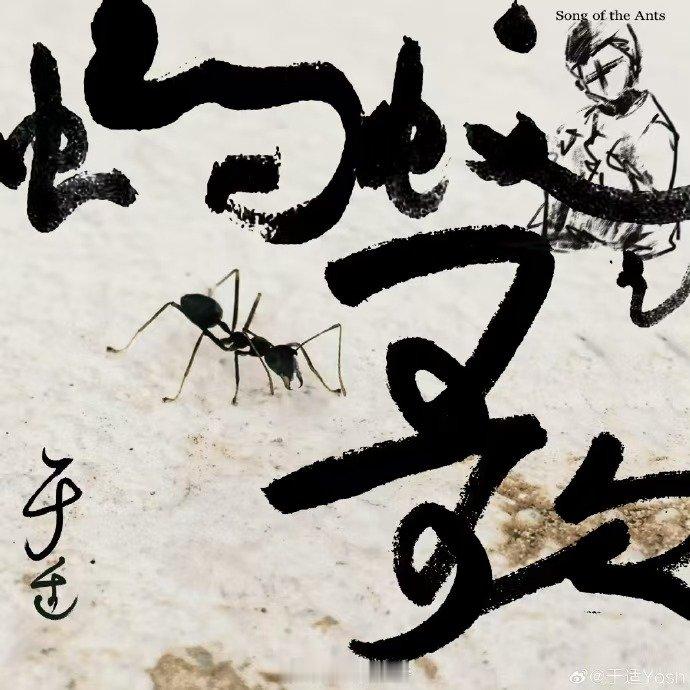 Song of the Ants
蚂蚁
歌
于适
@于适Yosh